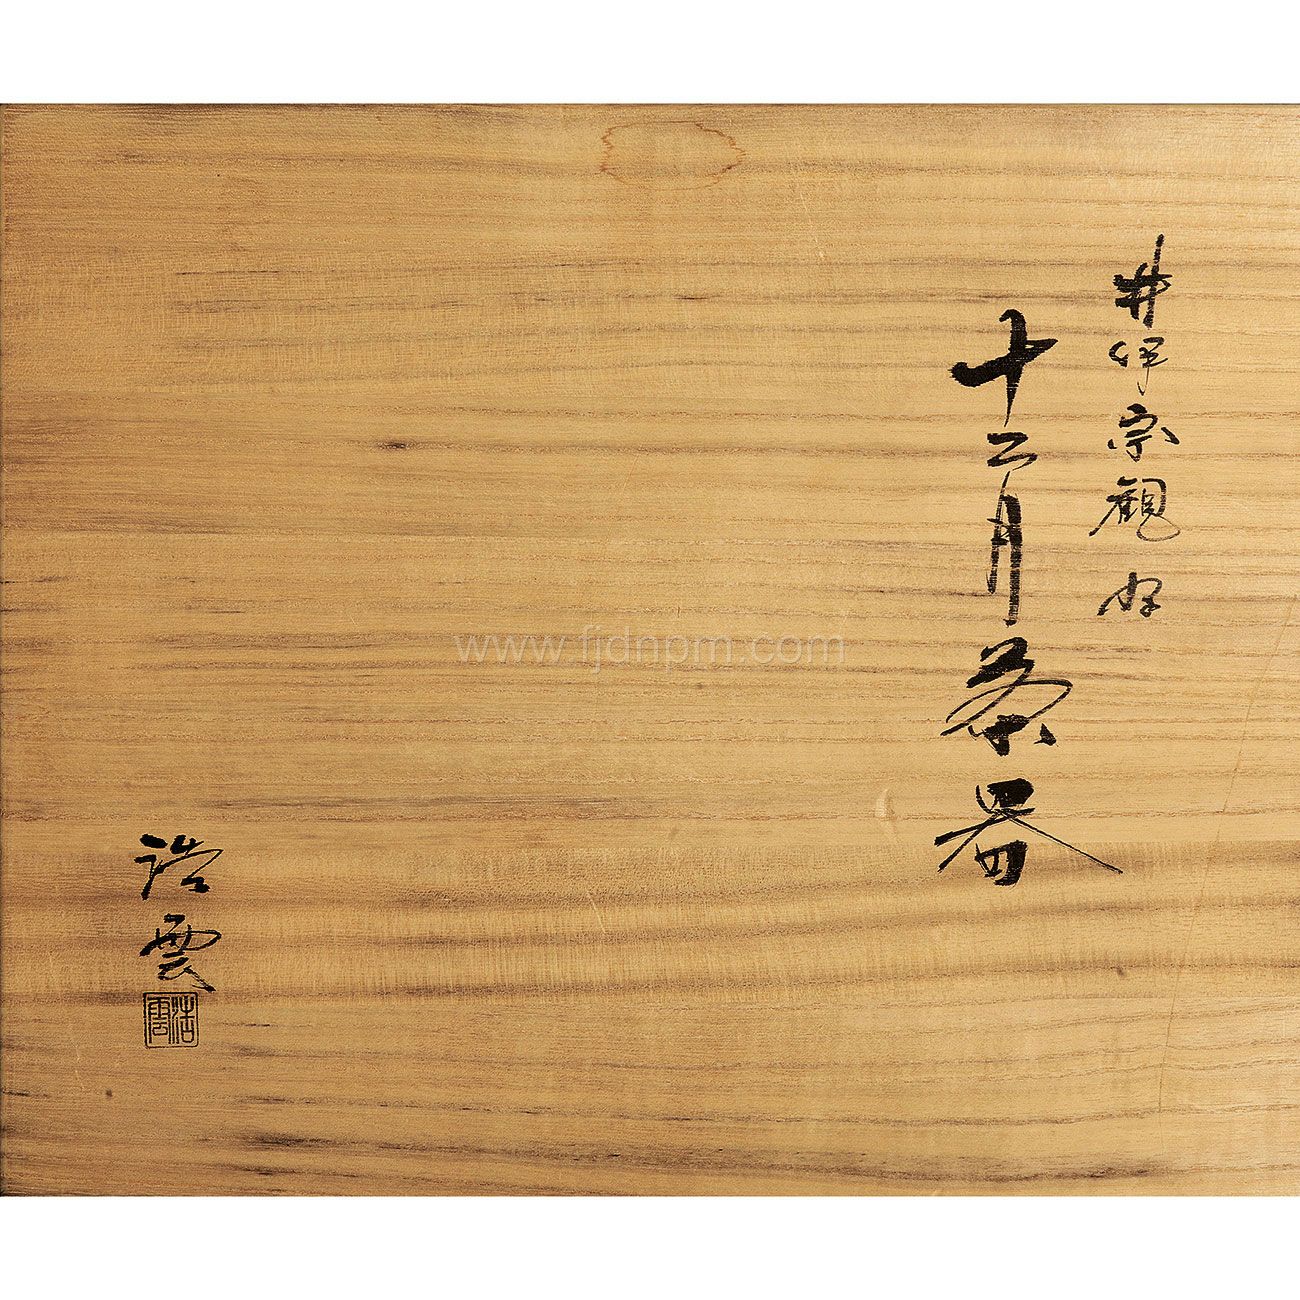 井伊宗観好
十二月茶器
浩雲
浩雲
www.fjdnpm.com